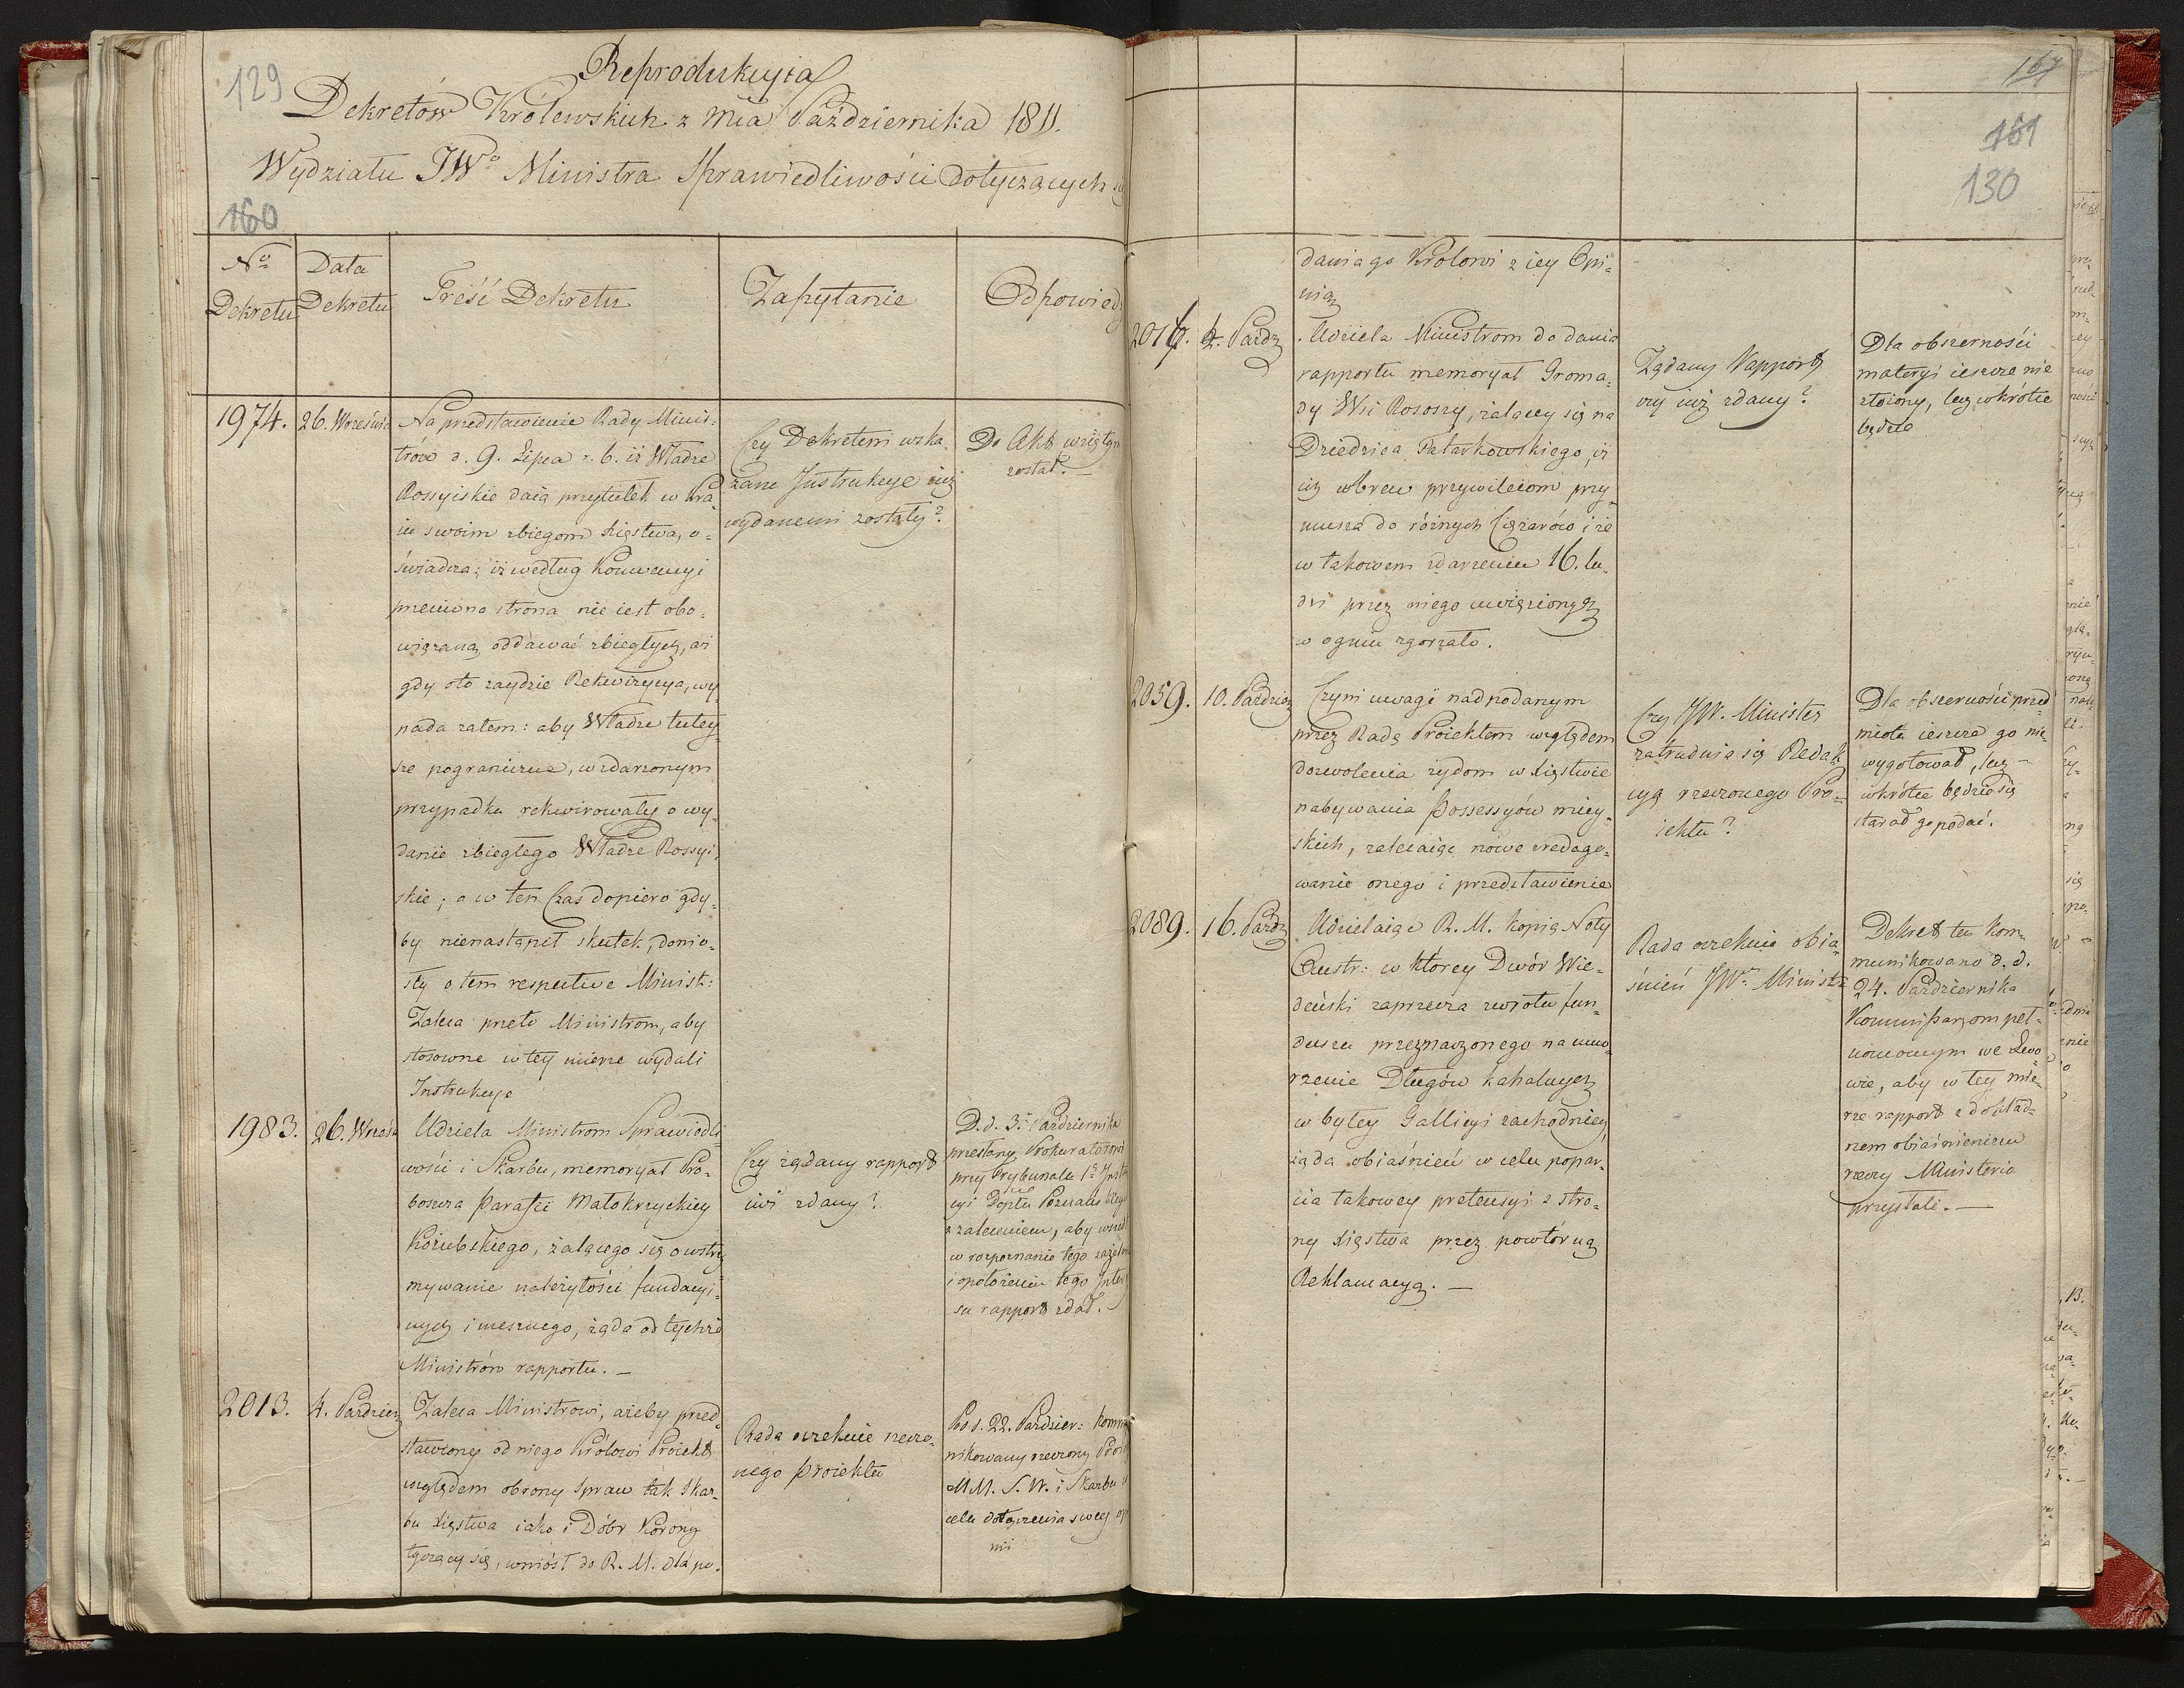 129
Reprodukcyia
Dekretów Królewskich z Mca Października 1811.
Wydziału JWº Ministra Sprawiedliwości dotyczących
160
Nº Dekretu
Data Dekretu
Treść Dekretu
Zapytanie
Odpowiedź
1974.
26. Września
Na przedstawienie Rady Minis:
trów d. 9. Lipca r. b. iż Władze
Rossyiskie daią przytułek w kra
iu swoim zbiegom Xięstwa, o=
świadcza: iż według Konwencyi
przeciwna strona nie iest obo=
wiązaną oddawać zbiegłych, aż
gdy oto zaydzie Rekwizycya, wy=
pada zatem: aby Władze tutey=
sze pograniczne, w zdarzonym
przypadku rekwirowały o wy=
danie zbiegłego Władze Rossyi=
skie; a w ten Czas dopiero gdy=
by nienastąpił skutek, donio=
sły o tem respective Minist:
Zaleca przeto Ministrom, aby
stosowne w tey mierze wydali
Instrukcye
Czy Dekretem wska
zane Instrukcye iuż
wydanemi zostały?
Do Akt wzięty
został.—
1983.
26. Wrześ
Udziela Ministrom Sprawiedli=
wości i Skarbu, memoryał Pro=
boszcza Parafii Małokrzyckiey
Kożubskiego, żalącego się o wstrzy
mywanie należytości fundacyi=
nych i mesznego, żąda od tychże
Ministrów rapportu.—
Czy żądany rapport
iuż zdany?
D. d. 3. Października
przesłany Prokuratorowi
przy Trybunale 1. Insta
cyi Dptu Poznańskiego
z zaleceniem, aby wszedł
w rozpoznanie tego zażale
i o położeniu tego Inter
su rapport zdał.
2013.
4. Paździer
Zaleca Ministrowi, ażeby przed=
stawiony od niego Królowi Proiekt
względem obrony spraw tak Skar=
bu Xięstwa iako i Dóbr Korony
tyczący się, wniósł do R. M. dla po=
Rada oczekuie rzeczo=
nego proiektu
Pod d. 22. Paździer: kommu
nikowany rzeczony Proiekt
MM. S. W. i Skarbu w
celu dołączenia swey opi
nii
167
161
130
dania go Królowi z iey Opi=
nią
2016.
4. Paźdz
Udziela Ministrom do dania
rapportu memoryał Groma=
dy Wsi Rososzy, żalącey się na
Dziedzica Patarkowskiego, iż
ią wbrew przywileiom przy=
musza do różnych Ciężarów i że
w takowem zdarzeniu 16. lu=
dzi przez niego uwięzionych
w ogniu zgorzało.
Żądany Rapport
czy iuż zdany?
Dla obszerności
materyi ieszcze nie
złożony, lecz wkrótce
będzie
2059.
10. Paździer
Czyni uwagi nad podanym
przez Radę Proiektem względem
dozwolenia żydom w Xięstwie
nabywania possessyów miey=
skich, zalecaiąc nowe zredago=
wanie onego i przedstawienie
Czy JW. Minister
zatrudnia się Redak
cyą rzeczonego Pro=
iektu?
Dla obszerności przed
miotu ieszcze go nie
wygotował, lecz —
wkrótce będzie się
starał go podać.
2089.
16. Paźdz
Udzielaiąc R. M. kopią Noty
Austr: w którey Dwór Wie=
deński zaprzecza zwrotu fun=
duszu przeznaczonego na umo=
rzenie Długów kahalnych
w byłey Gallicyi zachodniey
żąda obiaśnień w celu popar=
cia takowey pretensyi z stro=
ny Xięstwa przez powtórną
Reklamacyą.—
Rada oczekuie obia
śnień JWº Ministra
Dekret ten kom=
munikowano d. d.
24. Października
Kommissarzom peł=
nomocnym we Lwo
wie, aby w tey mie=
rze rapport z dokład=
nem obiaśnieniem
rzeczy Ministerio
przysłali.—